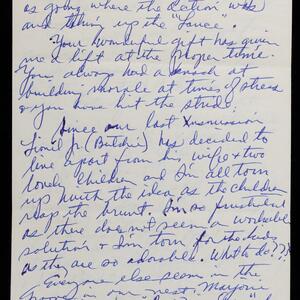 as going where the action was)
and taking up the "Lance".
Your wonderful gift has given
me a lift at the proper time.
You always had a knack at
building morale at times of stress
& you have hit the stride.
Since our last Xsmission
Lionel Jr (Butchie) has decided to
live apart from his wife & two
lovely children and I'm all torn
up with the idea as the children
reap the brunt. I'm so
as there doesn't seem a workable
solution & I'm torn for the kids
as they are so adorable. What to do???
Everyone else seem in the
in our nest.